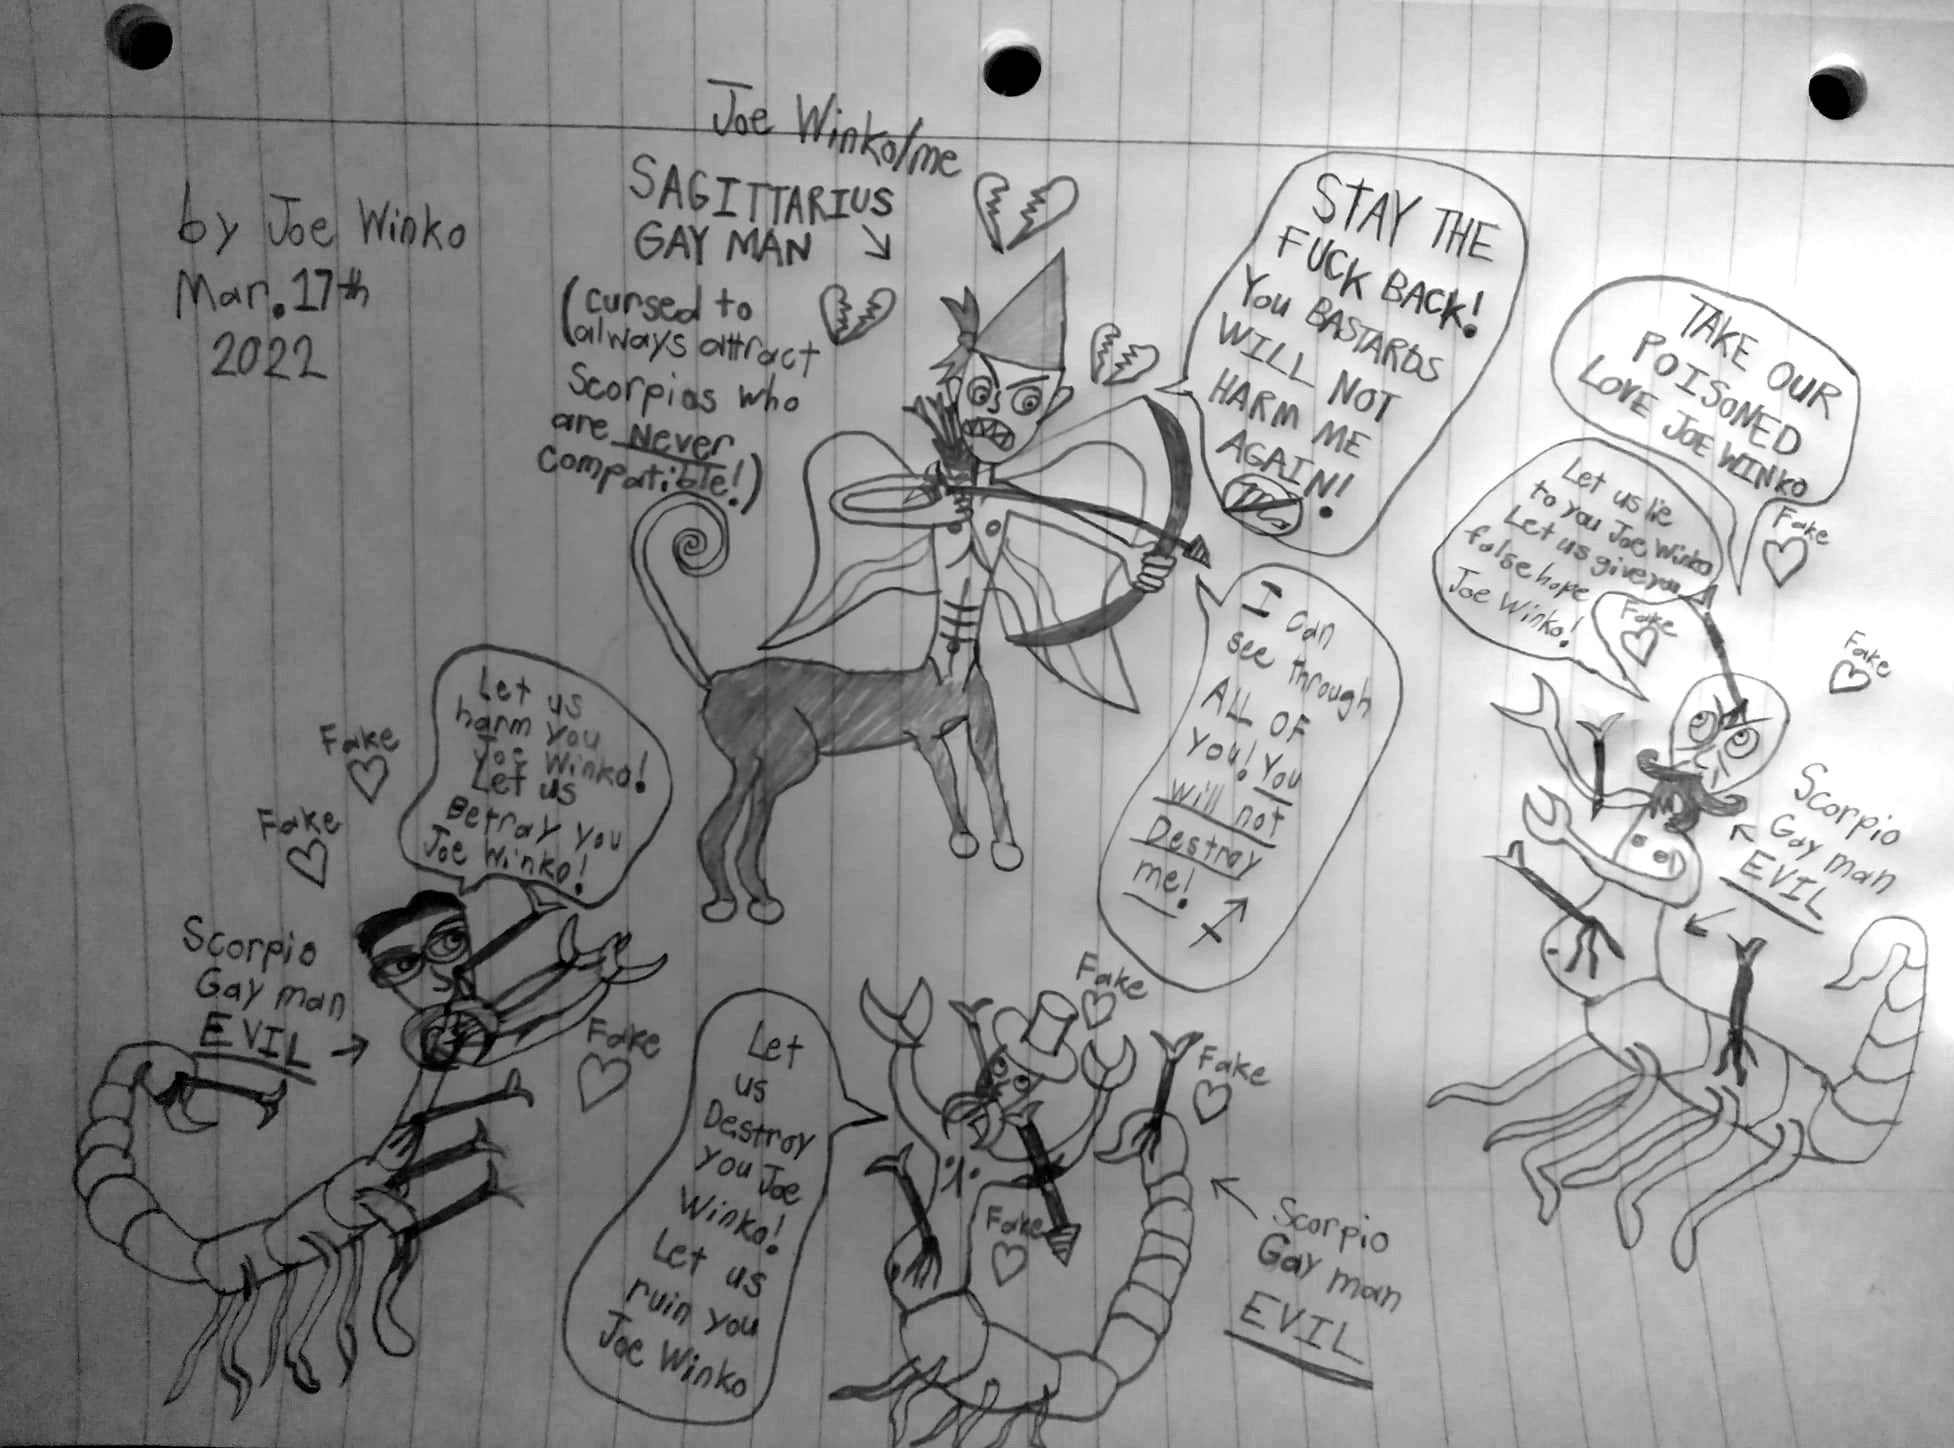 by Joe Winko
Mar. 17th
2022
Joe Winko/me
SAGITTARIUS
GAY MAN
(cursed to
always attract
Scorpios who
are Never
compatible!)
STAY THE
FUCK BACK!
You BASTARDS
WILL NOT
HARM ME
AGAIN!
I can
see through
ALL OF
YOU! You
will not
Destroy
me!
TAKE OUR
POISONED
LOVE JOE WINKO
Let us lie
to you Joe Winko
Let us give you
false hope
Joe Winko!
Fake
Fake
Fake
Scorpio
Gay man
EVIL
Let us
harm you
Joe Winko!
Let us
Betray you
Joe Winko!
Fake
Fake
Fake
Scorpio
Gay man
EVIL
Let
us
Destroy
you Joe
Winko!
Let us
ruin you
Joe Winko
Fake
Fake
Fake
Scorpio
Gay man
EVIL